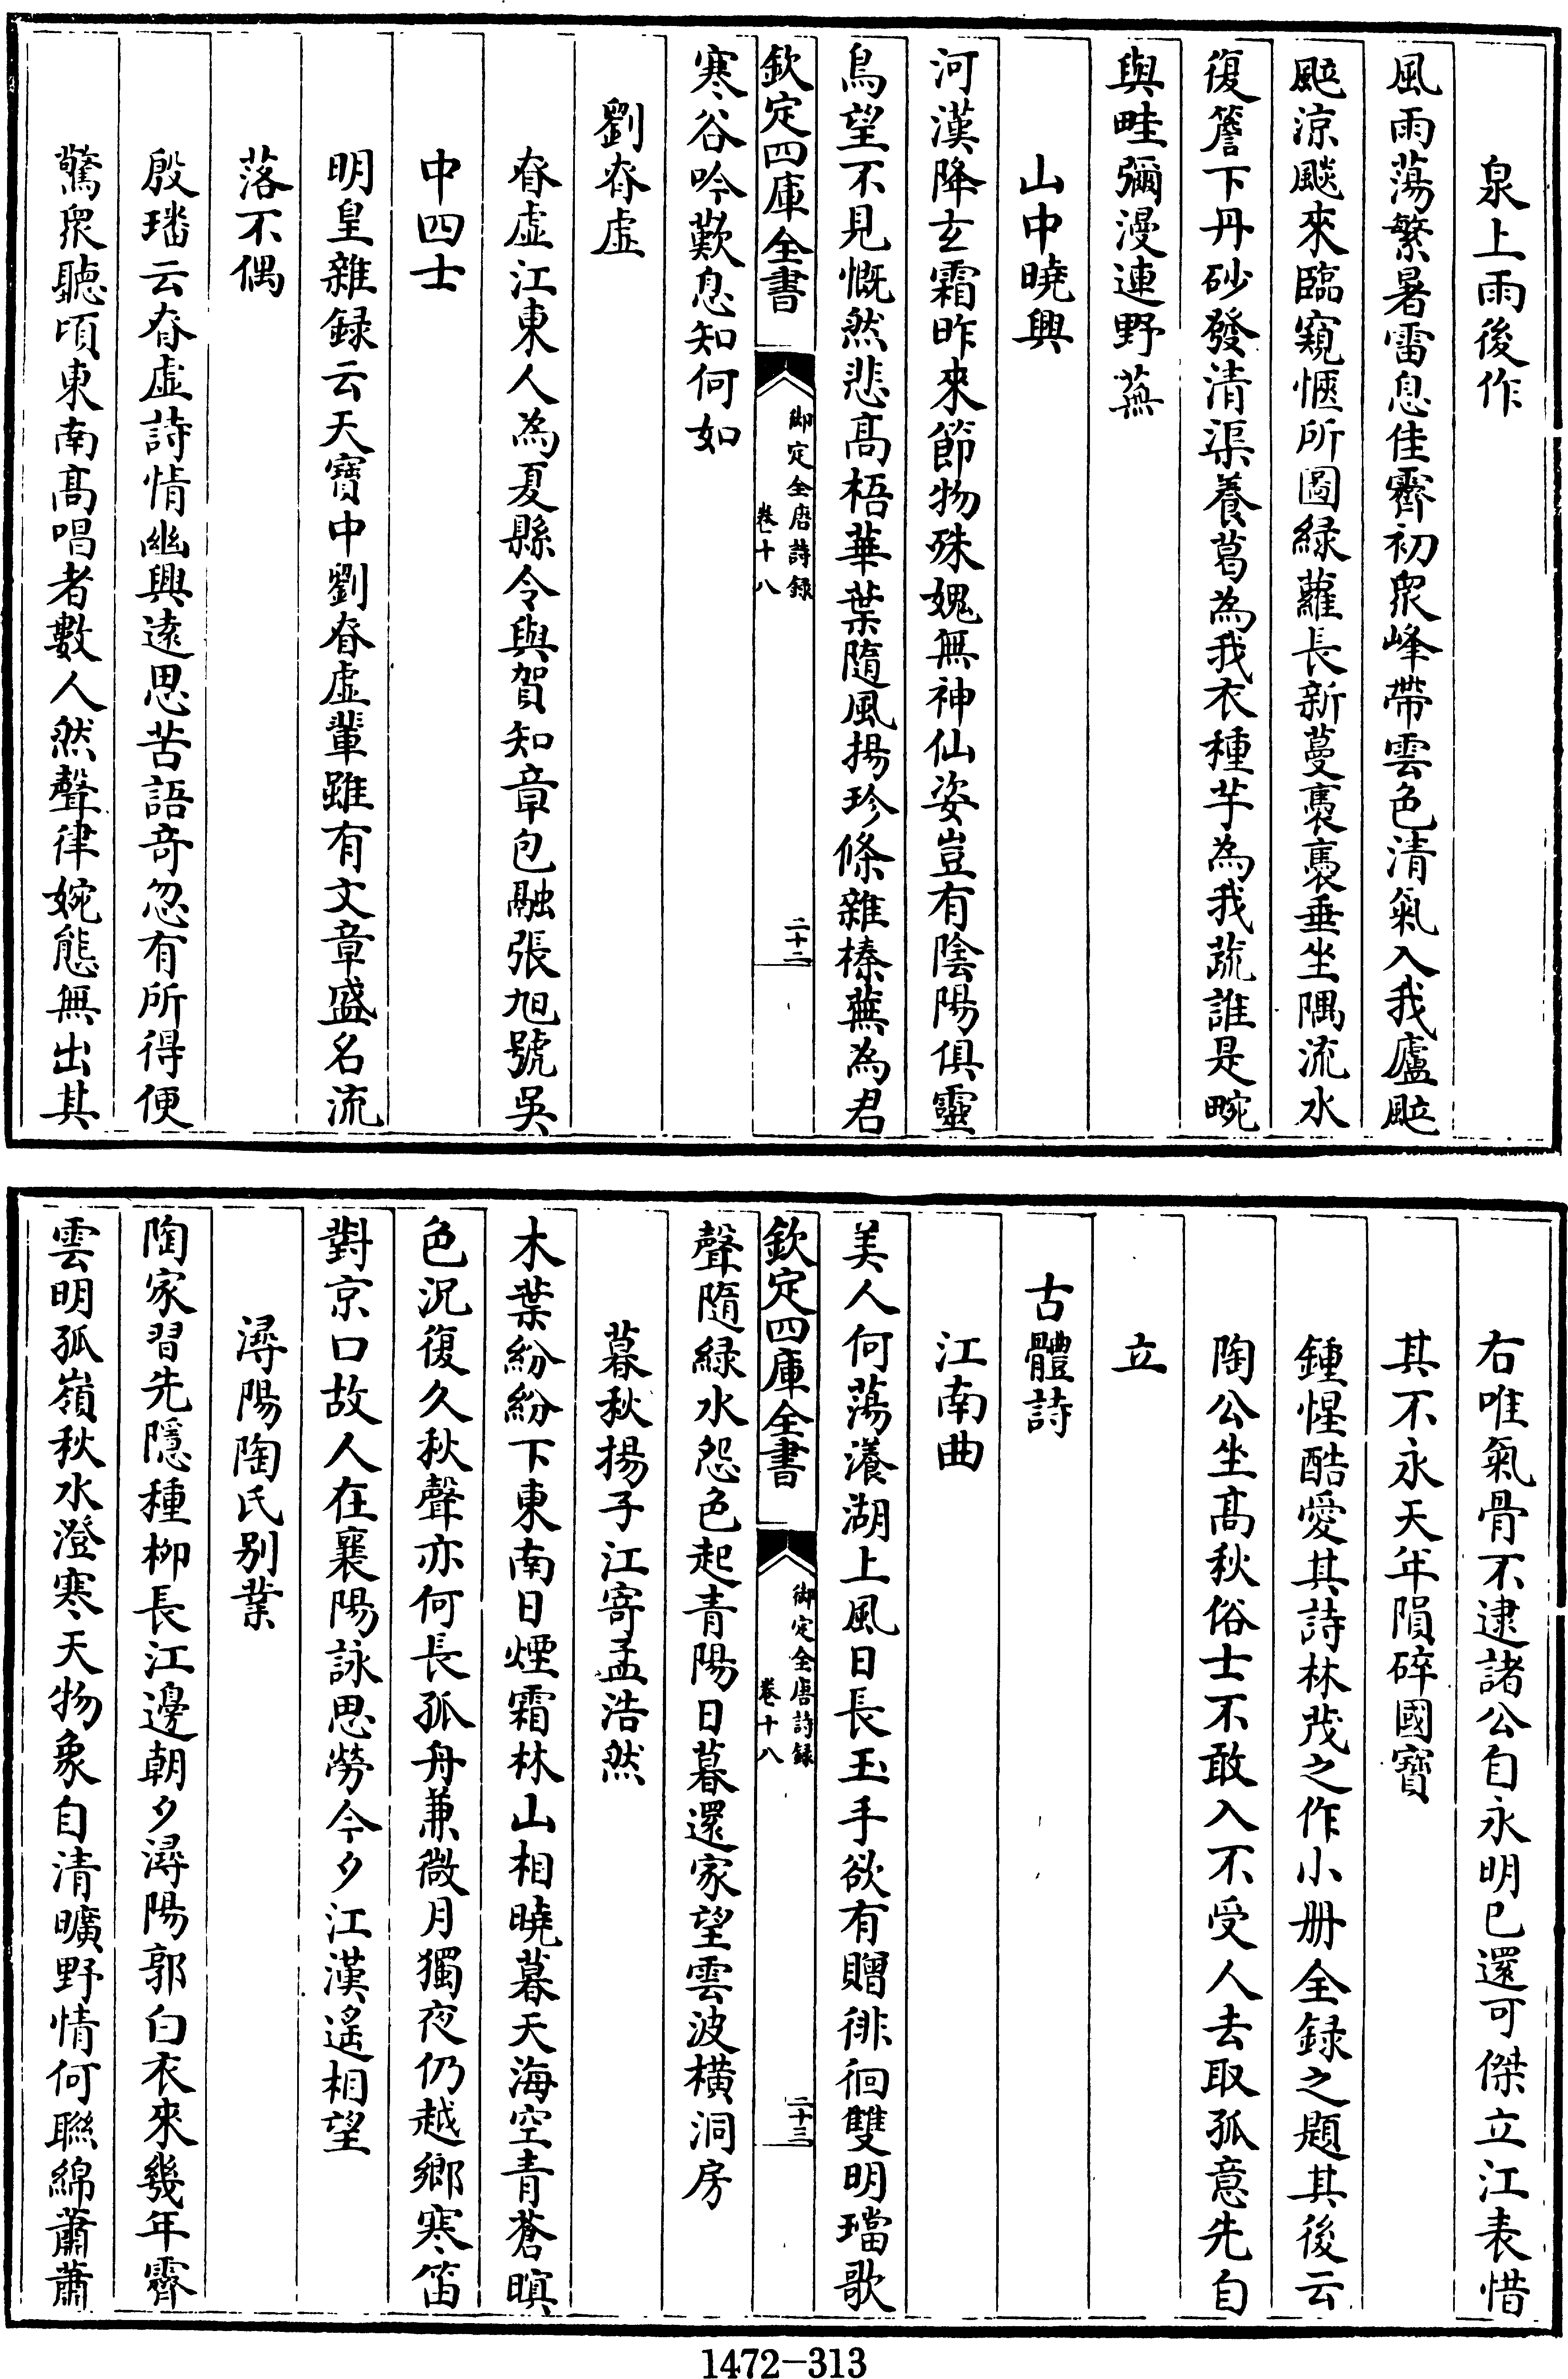 泉上雨後作
風雨蕩繁暑雷息佳霽初衆峰帶雲色清氣入我廬颭
颭涼飈來臨窺愜所圖緑蘿長新蔓裊裊垂坐隅流水
復簷下丹砂發清渠養葛為我衣種芋為我蔬誰是畹
與畦彌漫連野蕪
山中曉興
河漢降玄霜昨來節物殊媿無神仙姿豈有陰陽俱靈
鳥望不見慨然悲髙梧華葉隨風揚珍條雜榛蕪為君
欽定四庫全書
御定全唐詩録
卷十八
二十二
寒谷吟歎息知何如
劉眘虚
眘虚江東人為夏縣令與賀知章包融張旭號吳
中四士
明皇雜録云天寶中劉眘虚輩雖有文章盛名流
落不偶
殷璠云眘虚詩情幽興遠思苦語竒忽有所得便
驚衆聽頃東南髙唱者數人然聲律婉態無出其
右唯氣骨不逮諸公自永明已還可傑立江表惜
其不永天年隕碎國寶
鍾惺酷愛其詩林茂之作小册全録之題其後云
陶公坐髙秋俗士不敢入不受人去取孤意先自
立
古體詩
江南曲
美人何蕩漾湖上風日長玉手欲有贈徘徊雙明璫歌
欽定四庫全書
御定全唐詩録
卷十八
二十三
聲隨緑水怨色起青陽日暮還家望雲波橫洞房
暮秋揚子江寄孟浩然
木葉紛紛下東南日煙霜林山相曉暮天海空青蒼暝
色況復久秋聲亦何長孤舟兼微月獨夜仍越鄉寒笛
對京口故人在襄陽詠思勞今夕江漢遙相望
潯陽陶氏别業
陶家習先隱種柳長江邊朝夕潯陽郭白衣來幾年霽
雲明孤嶺秋水澄寒天物象自清曠野情何聯綿蕭蕭
1472-313